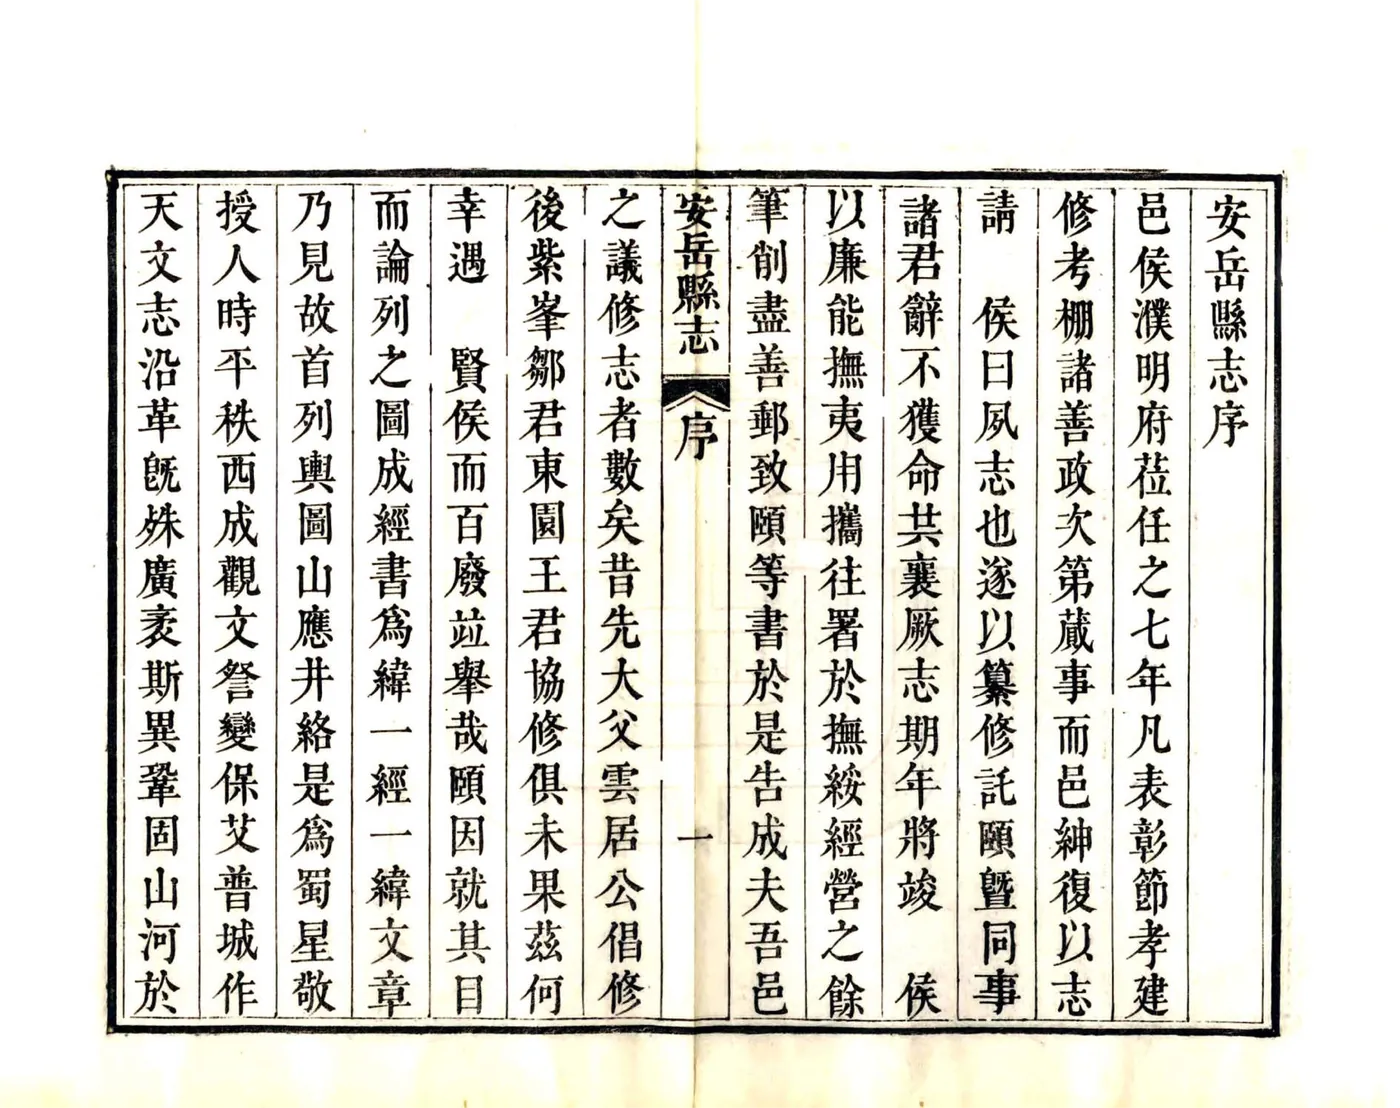 安岳縣志序
邑侯濮明府莅任之七年凡表彰節孝建
修考棚諸善政次第蕆事而邑紳復以志
請　侯曰夙志也遂以纂修託頤曁同事
諸君辭不獲命共襄厥志期年將竣　侯
以廉能撫夷用攜往署於撫綏經營之餘
筆削盡善郵致頤等書於是告成夫吾邑
安岳縣志　序　一
之議修志者數矣昔先大父雲居公倡修
後紫峯鄒君東園王君協修俱未果茲何
幸遇　賢侯而百廢竝舉哉頤因就其目
而論列之圖成經書爲緯一經一緯文章
乃見故首列輿圖山應井絡是爲蜀星敬
授人時平秩西成觀文詧變保艾普城作
天文志沿革旣殊廣袤斯異鞏固山河於